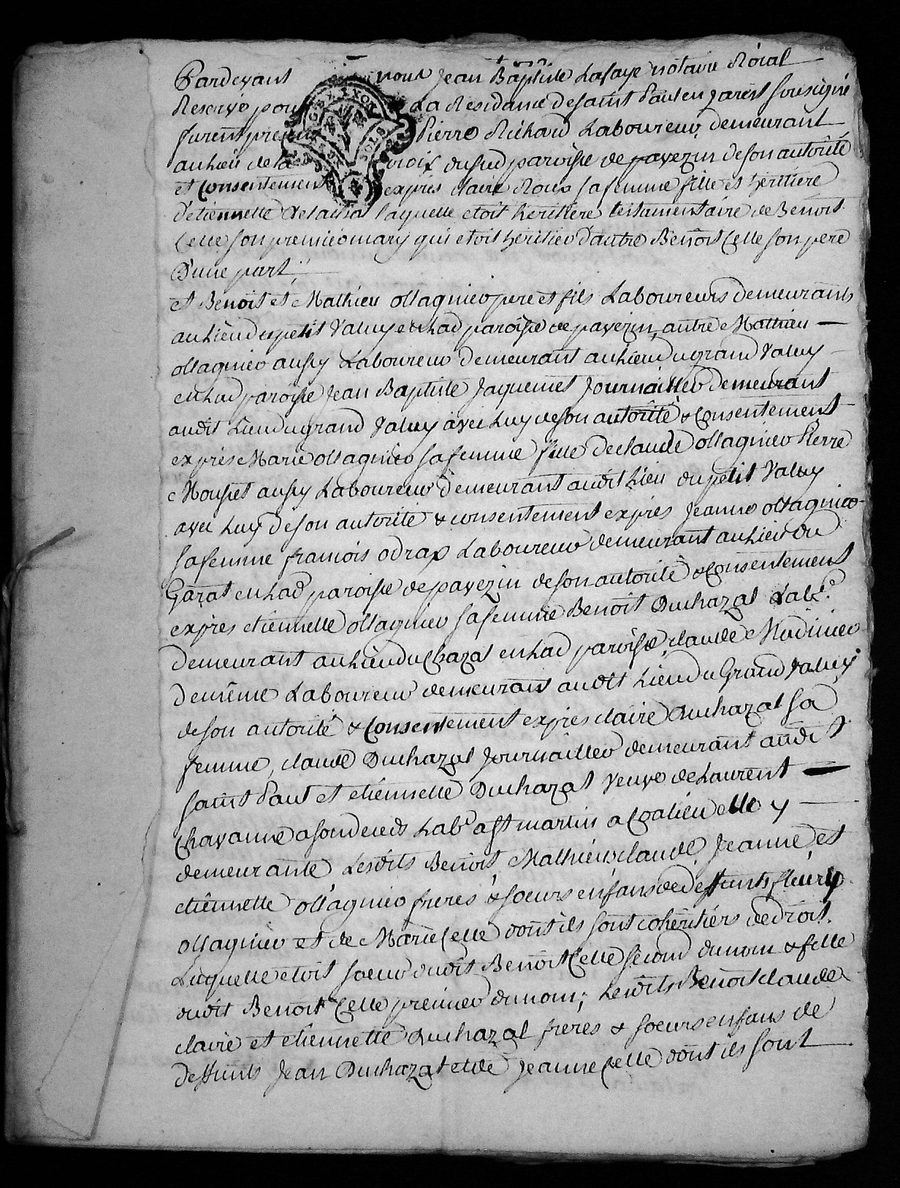 Pardevant nous Jean Baptiste Lafaye notaire Roïal
Reservé pour La Residance de saint Paul en Jarest soussigné
furent presen Pierre Richard Laboureur demeurant
au Lieu de la croix du sud paroisse de pavezin de son autorité
et Consentement exprés claire Roux sa femme fille et heritiere
D'etiennette laquelle etoit heritiere testamentaire de Benoit
Celle son premier mary qui etoit heritier d'autre Benoit Celle son pere
D'une part
et Benoit et Mathieu ollagnier pere et fils Laboureurs demeurants
au Lieu du petit Valuy en Lad paroisse de pavezin, autre Mathieu
ollagnier aussy Laboureur demeurant au Lieu du grand Valuy
en Lad paroisse Jean Baptiste Jaquemet Journaillier demeurant
audit Lieu du grand Valuy avec Luy de son autorité & Consentement
exprés Marie ollagnier sa femme fille de claude ollagnier Pierre
Mousset aussy Laboureur demeurant audit Lieu du petit Valuy
avec Luy de son autorité & consentement exprés Jeanne ollagnier
sa femme francois odrax Laboureur demeurant au Lieu du
Garat en Lad paroisse de pavezin de son autorité & Consentement
exprés etiennette ollagnier sa femme Benoit Duchazal Labr
demeurant au Lieu du chazal en Lad paroisse, claude Madinier
de même Laboureur demeurant audit Lieu du Grand Valuy
de son autorité & Consentement exprés claire Duchazal sa
femme, claude Duchazal Journaillier demeurant audit
saint Paul et etiennette Duchazal Veuve de Laurent
Chavanne a son deceds Labr a St martin a Coalieu elle y
demeurante Lesdits Benoit Mathieu, claude Jeanne et
etiennette ollagnier freres & soeurs enfans de deffunts fleury
ollagnier et de Marie Celle dont ils sont coheritiers de droit
Laquelle etoit soeur dudit Benoit Celle second du nom & fille
dudit Benoit Celle premier du nom; Lesdits Benoit claude
claire et etiennette Duchazal freres & soeurs enfans de
deffunts Jean Duchazal et de Jeanne Celle dont ils sont